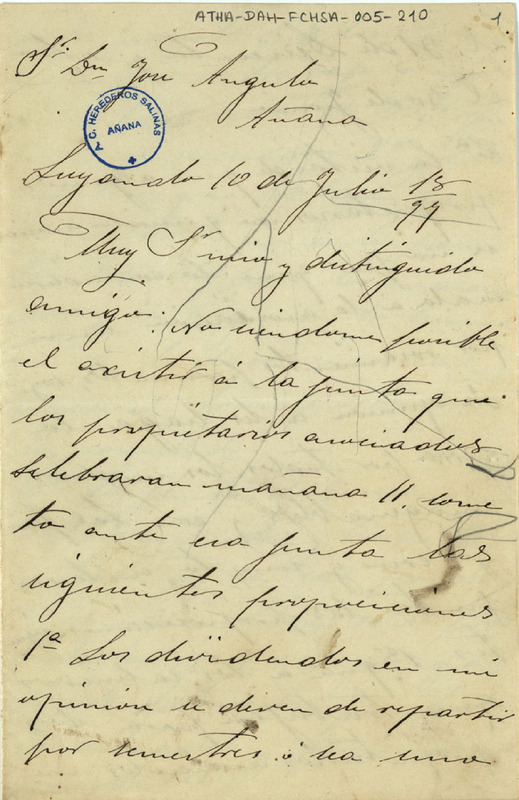 ATHA-DAH-FCHSA-005-210
1
Sr. Dn. José Angulo
Añana
C. HEREDEROS SALINAS
AÑANA
Luyando 10 de Julio 18/97
Muy Sr mio y distinguido
amigo: No siendome posible
el axistir á la junta que
los propietarios asociados
selebraran mañana 11. come
to ante esa junta las
siguientes proposiciones
1ª Los dividendos en mi
opinion se deven de repartir
por semestres ó sea uno